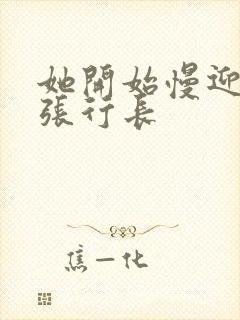 她開始慢迎
張行長
焦一化